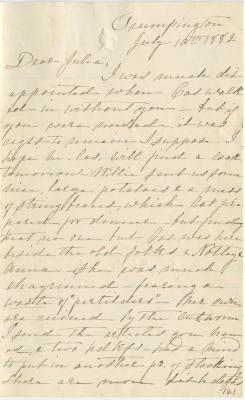 Trumpington
July 10th 1882
Dear Julia,
I was much dis
appointed when Cas walk
ed in without you - but if
you were needed it was
right to remain I suppose. I
hope he Cas, will find a cook
tomorrow Willie sent us some
nice, large potatoes & a mess
of string beans, which Cat pre
pared for dinner but finding
that no one but Cas was here
beside the old folks &
Anna She was much
chagrined fearing a
waste of "pertitches" Our
are ruined by the
I send the articles you nam
ed, & two had a mind
to put in another pr. of Stockings
There are more
161